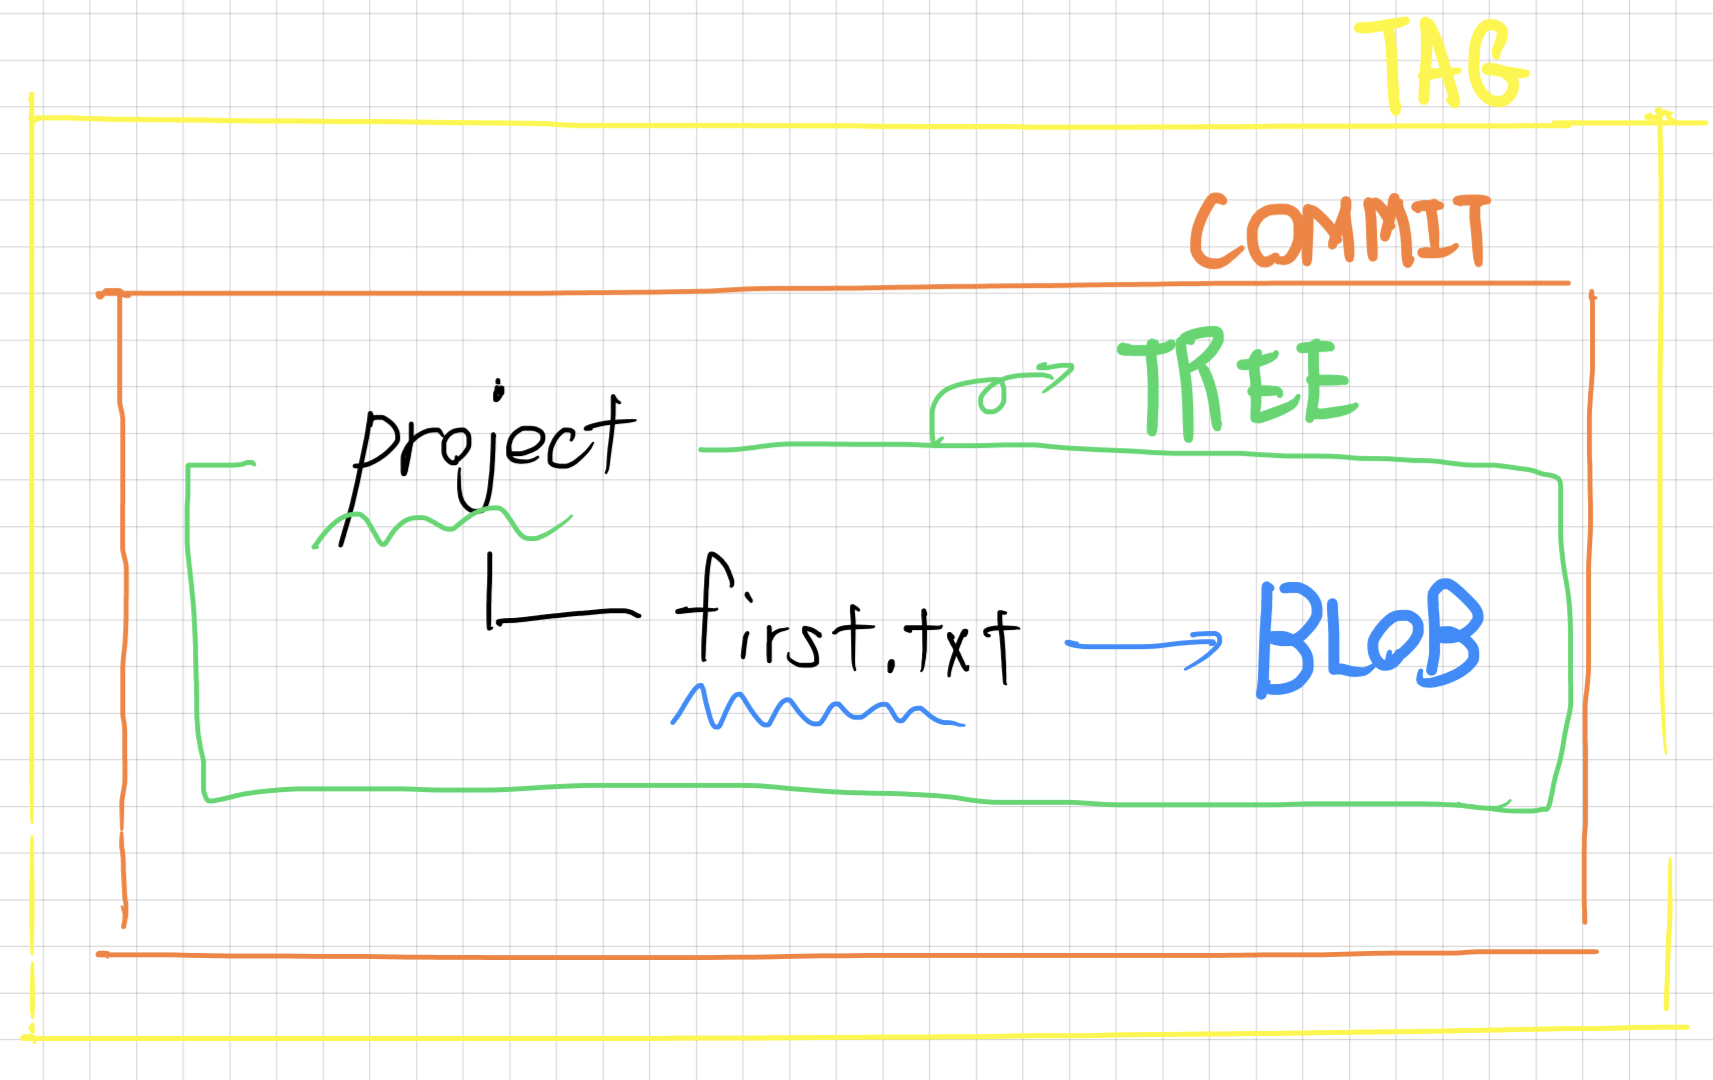 TAG
COMMIT
TREE
project
first.txt
BLOB